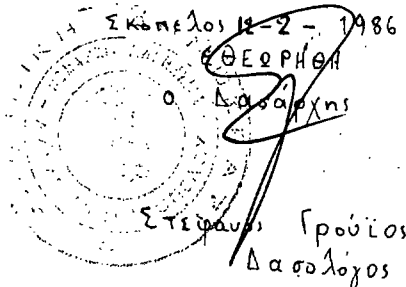 Σκόπελος 12-2- 1986
ΕΘΕΩΡΗΘΗ
Ο Δασάρχης
Στέφανος Γρούϊος
Δασολόγος